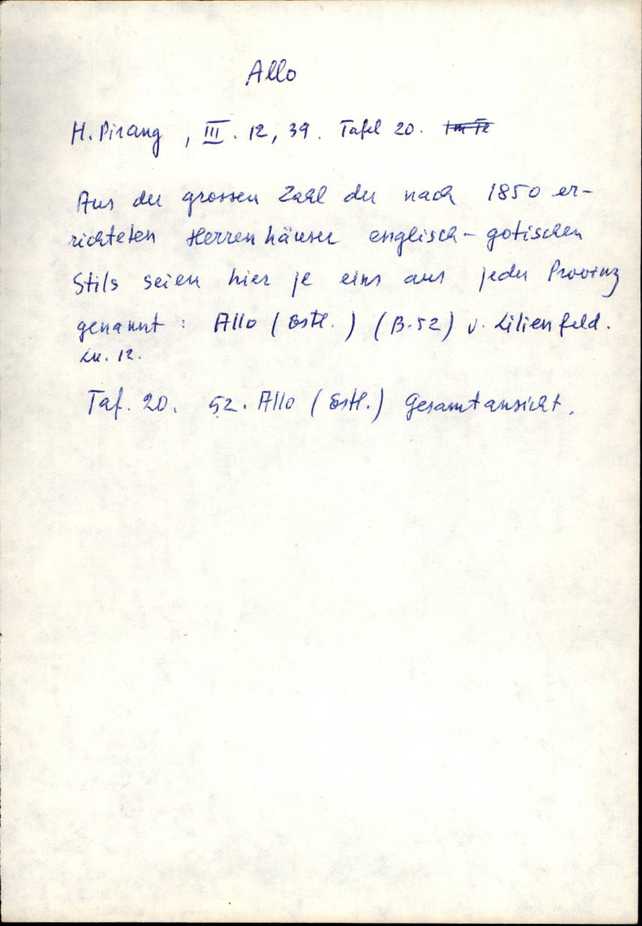 Allo
H. Pirang, III. 12, 39. Tafel 20. Im Te
Aus der grossen Zahl der nach 1850 er-
richteten Herrenhäuser englisch-gotischen
Stils seien hier je eins aus jeder Provinz
genannt: Allo (Estl.) (B.52) v. Lilienfeld.
Lk. 12.
Taf. 20. 52. Allo (Estl.) Gesamtansicht.